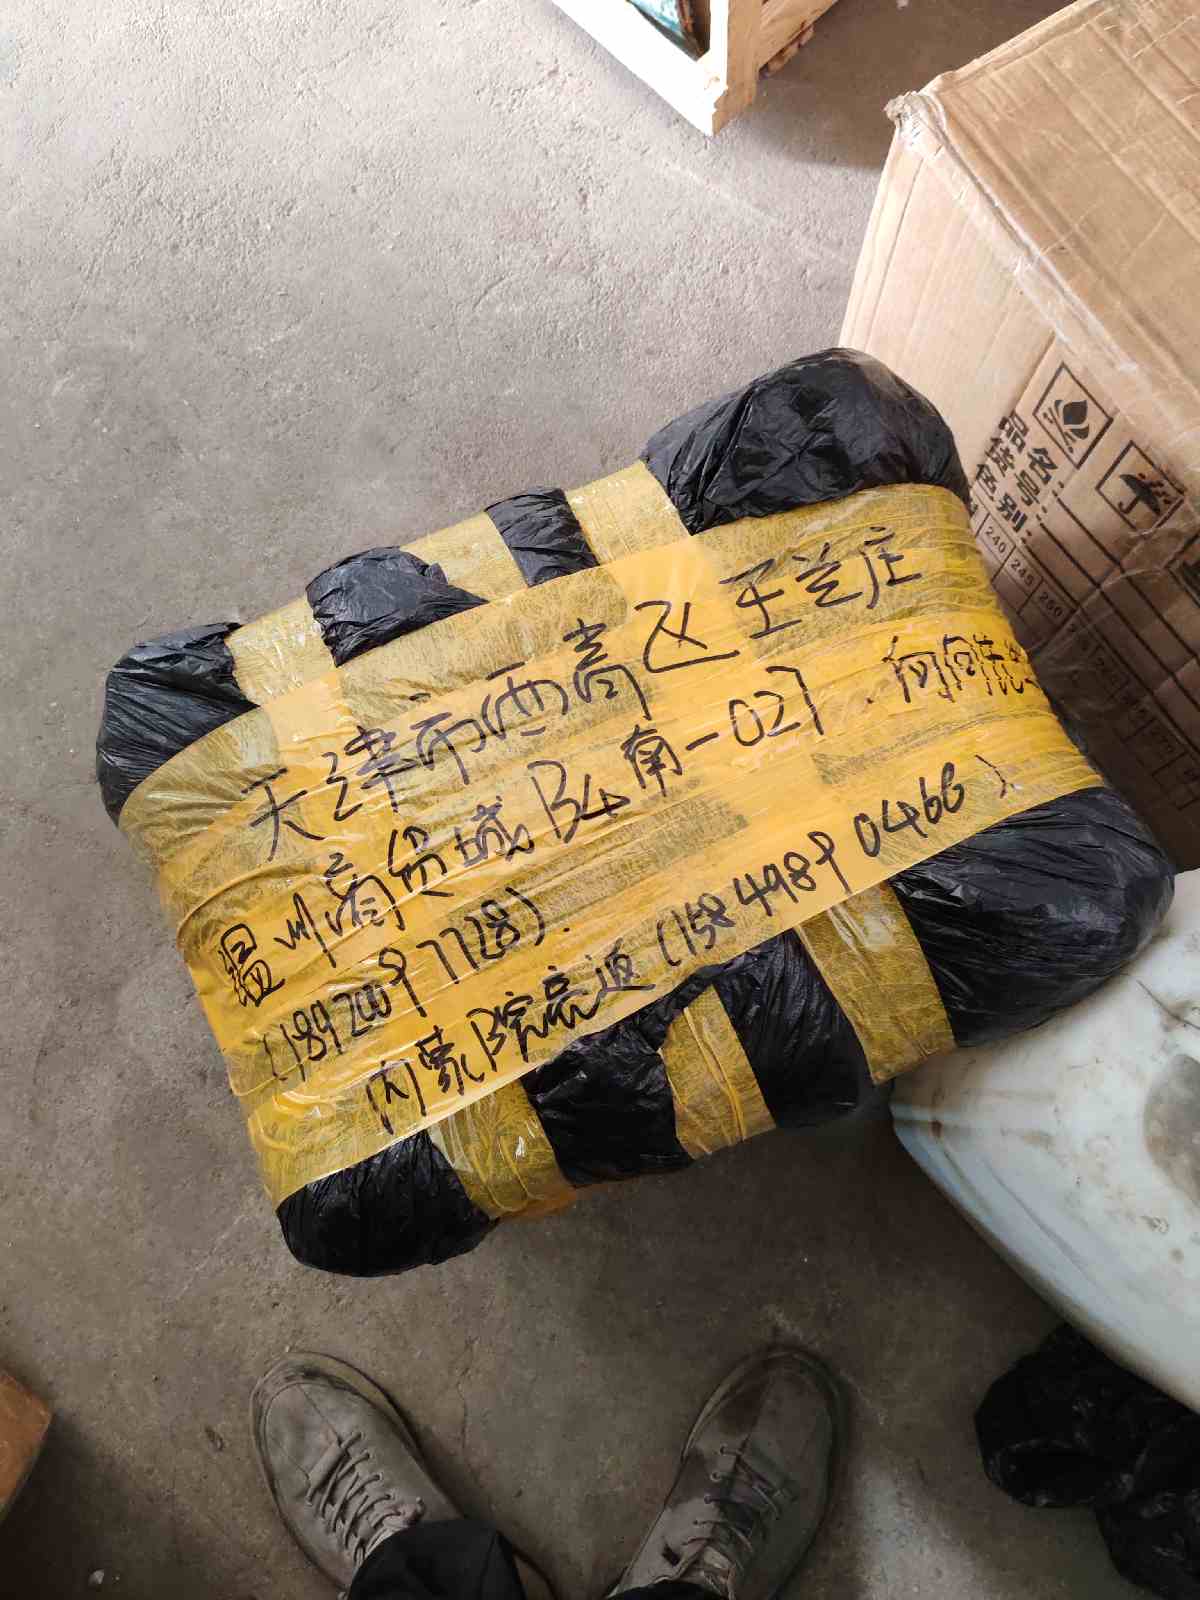 天津市西青区王兰庄
温州商贸城B4南-027.向向先生
(18920097728).
内蒙阿院高迪(15849890466)
品名:
货号:
色别:
240
245
250